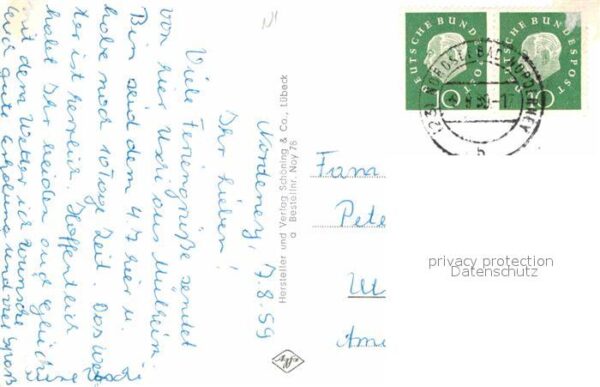 Norderney, 7.8.59
Ihr Lieben!
Viele Feriengrüße sendet
von hier Uxi aus Mülheim.
Bin seid dem 4.7. hier u.
habe noch 10 Tage Zeit. Das Wet-
ter ist herrlich. Hoffentlich
habt Ihr beiden auch Glück
mit dem Wetter ich wünsche
Euch gute Erholung und viel Spaß
Hersteller und Verlag: Schöning & Co., Lübeck
a Bestellnr. Noy 76
DEUTSCHE BUNDESPOST
10
DEUTSCHE BUNDESPOST
10
NORDSEEBAD NORDERNEY
Fam
Pete
privacy protection
Datenschutz